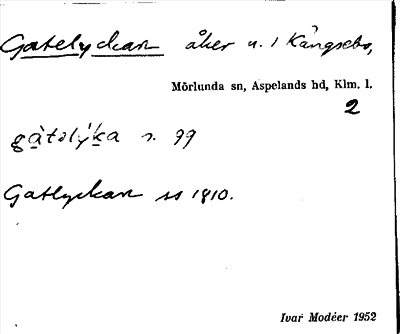 Gatelyckan åker u. 1 Kångsebo,
Mörlunda sn, Aspelands hd, Klm. l.
2
gàtəlý̀ka s. 99
Gatlyckan ss 1810.
Ivar Modéer 1952